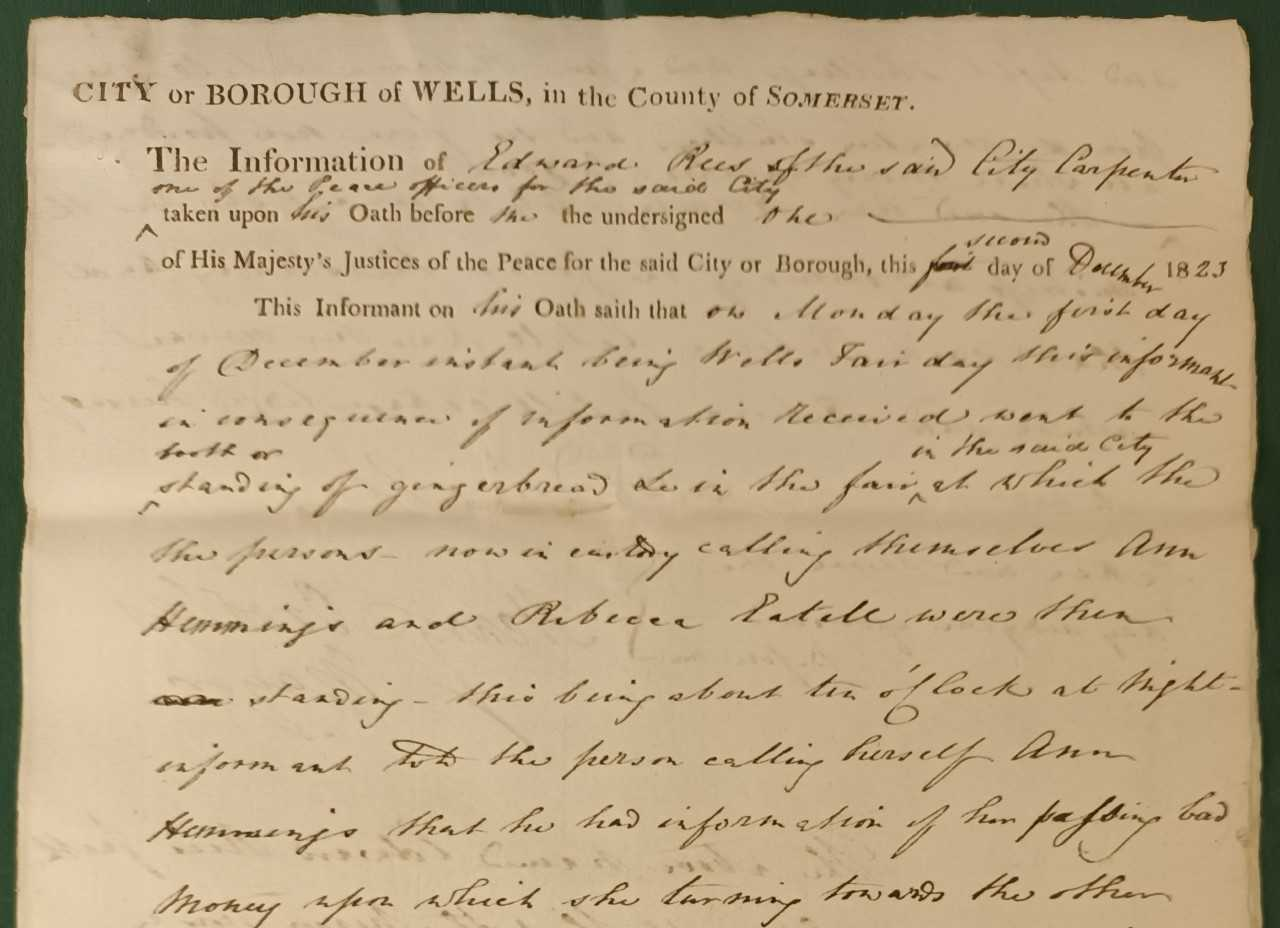 CITY or BOROUGH of WELLS, in the County of SOMERSET.
The Information of Edward Rees of the said City Carpenter
one of the Peace officers for the said City
taken upon his Oath before the the undersigned One
of His Majesty's Justices of the Peace for the said City or Borough, this first second day of December 1823
This Informant on his Oath saith that on Monday the first day
of December instant being Wells Fair day this informant
in consequence of information received went to the
booth or in the said City
standing of gingerbread &c in the fair at which the
the persons now in custody calling themselves Ann
Hemmings and Rebecca Eatell were then
standing - this being about ten o'Clock at Night -
informant told the person calling herself Ann
Hemmings that he had information of her passing bad
Money upon which she turning towards the other